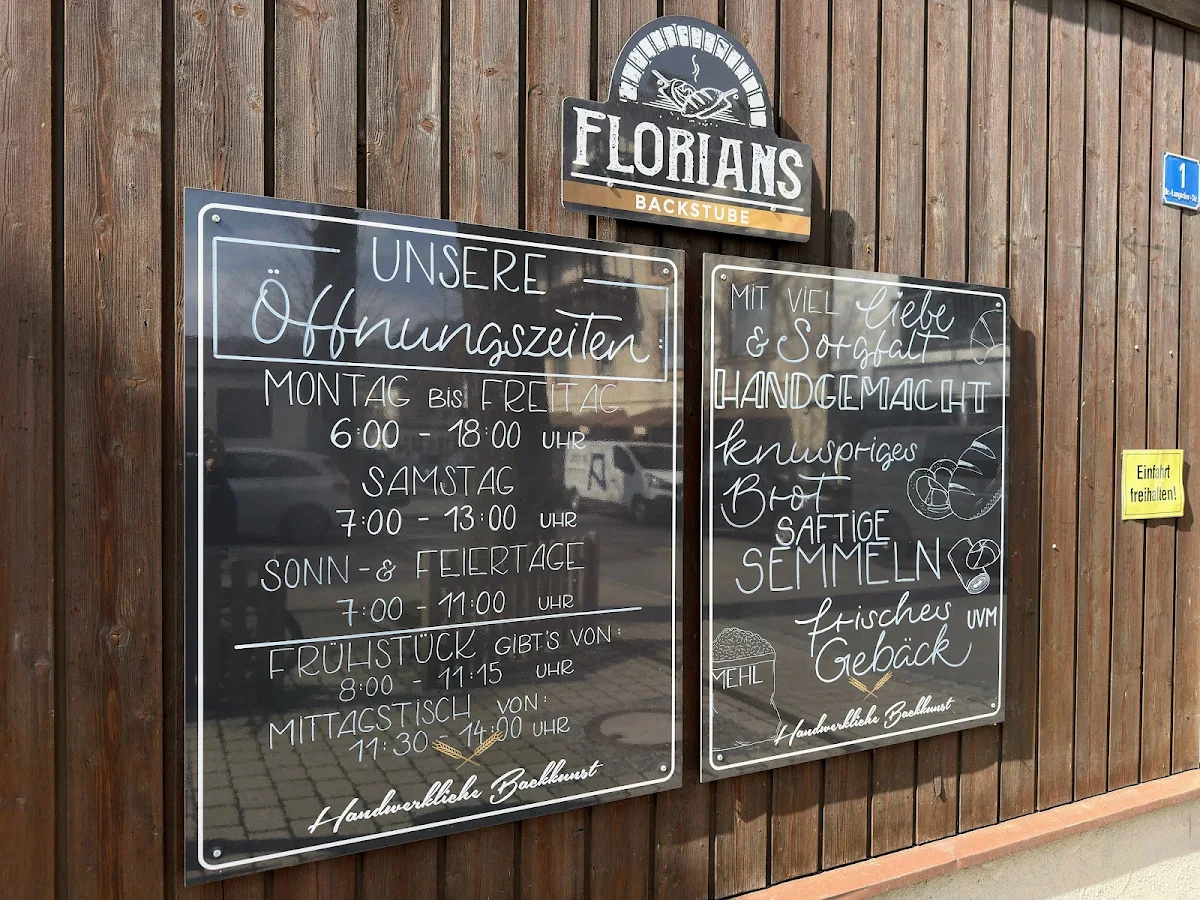 FLORIANS
BACKSTUBE
UNSERE
Öffnungszeiten:
MONTAG BIS FREITAG
6:00 - 18:00 UHR
SAMSTAG
7:00 - 13:00 UHR
SONN-& FEIERTAGE
7:00 - 11:00 UHR
FRÜHSTÜCK GIBT'S VON:
8:00 - 11:15 UHR
MITTAGSTISCH VON:
11:30 - 14:00 UHR
Handwerkliche Backkunst
MIT VIEL Liebe
& Sorgfalt
HANDGEMACHT
knuspriges
Brot
SAFTIGE
SEMMELN
frisches UVM
Gebäck
MEHL
Handwerkliche Backkunst
1
Einfahrt
freihalten!